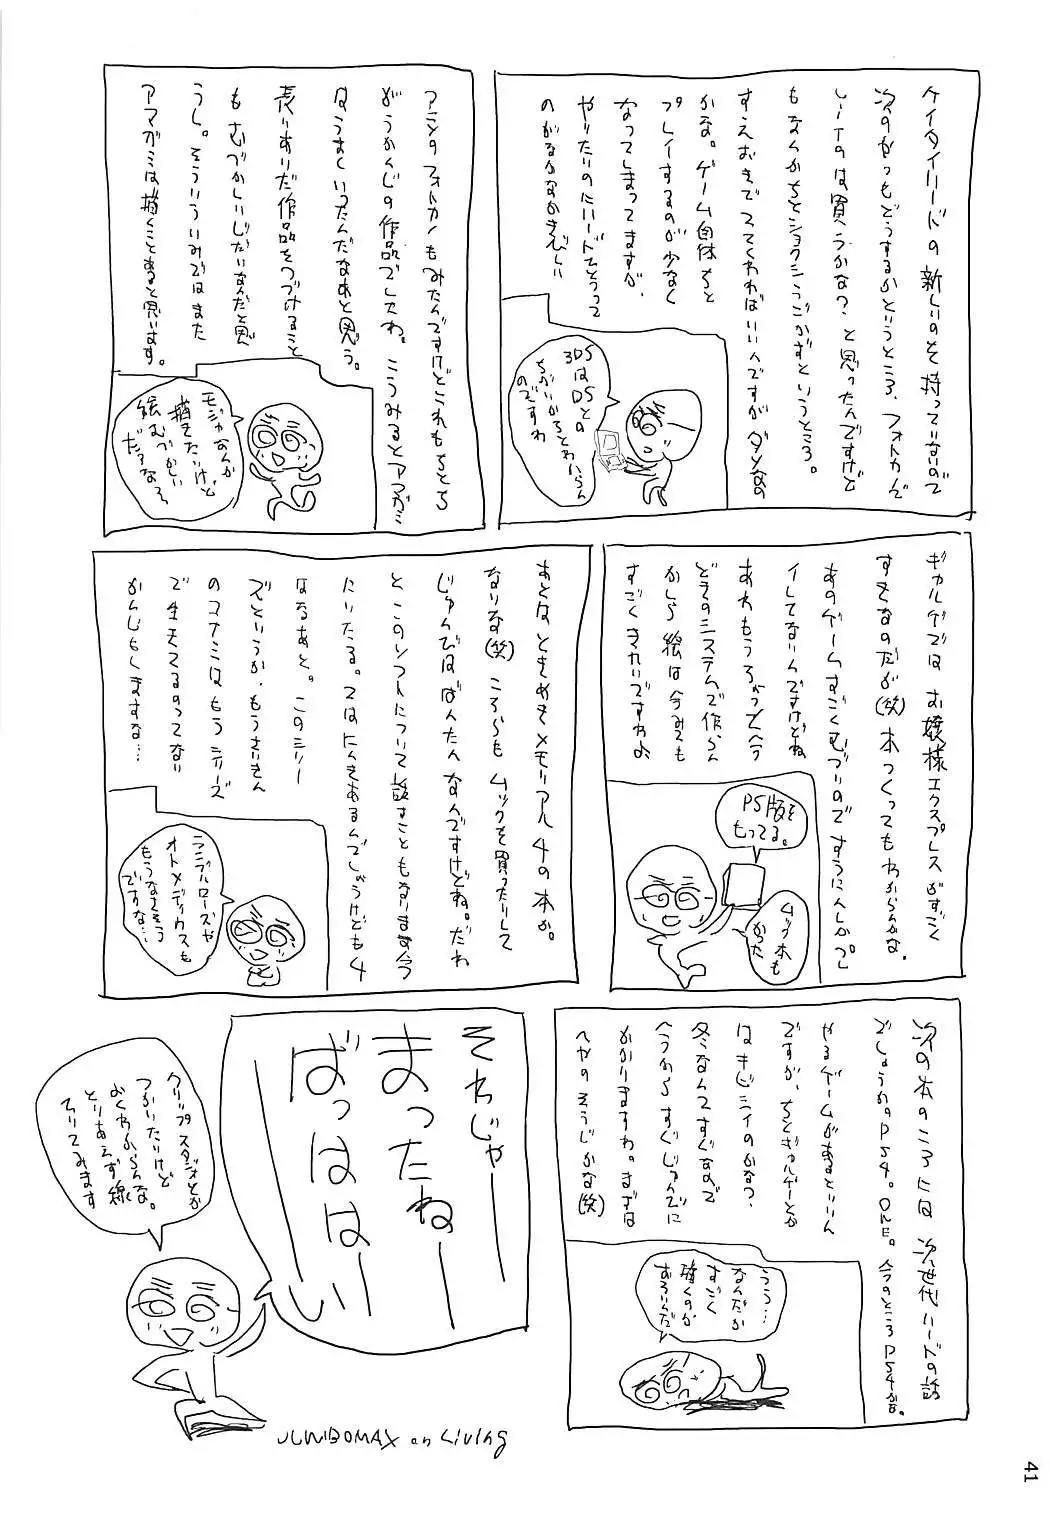 ケイタイハードの新しいのを持っていないので
次のがつもどうするかというところ、フォトカノが
しーTのは買うかな?と思ったんですけど
もなんかちとショクシうごかずというところ。
すえおきででてくれればいいんですがダメなの
かな。ゲーム自体ちと
プレイするのが少なく
なってしまってますが、
やりたいのにハードでどうって
のがなかなかきびしい
3DSは
DSとの
ちがいがちとわからん
のですわ
アニメのフォトカノもみたんですけどこれもちとち
がうかんじの作品でしたわ。こうみるとアマガミ
はうまくいったんだなあと思う。
表りありだ作品をつづけること
もむづかしいじだいなんだと思
うし。そういういみではまた
アマガミは描くことあると思います。
モジャなんか
描きたいけど
絵むづかしい
だろなろ
ギャルゲではお嬢様エクスプレスがすごく
すきなのだが(笑)本つくってもわからんかな。
あのゲームすごくむづいのですうにんしかプレ
イしてないんですけどね
あれもうろがってへう
どものシステムで作らん
かしら 絵は今みても
すごくきれいですわよ
PS版を
もってる。
ムック本も
かった
あとはときめきメモリアル4の本か。
なりな(笑)ころらも ムックを買ったりして
じゅんびはばんたんなんですけどね。だれ
とこのソフトについて話すこともなります今
にいたる。ではにんきあるんでしょうけども4
はなるあと。このシリー
ズというか、もうさいきん
のコナミはもうシリーズ
で生きてるのってない
かんじもしますな…
ランブルローズや
オトメディウスも
もうなさそう
ですな…
次の本のころには次世代ハードの話
でしょうか。PS4。ONE。今のところPS4かな。
やるゲームがあるといいん
ですが、ちとギャルゲーとか
はキビシイのかな?
冬なんてすぐなので
今うからすぐじゅんびに
かかりますわ。まずは
へやのそうじかな(笑)
うう…
なんだか
すごく
描くのが
おろいんだ
それじゃー
まったねー
ばっはは
ーい
クリップスタジオとか
つかいたいけど
よくわからんな。
とりあえず線く
ていてみます
ULWIBOMAX on Living
41